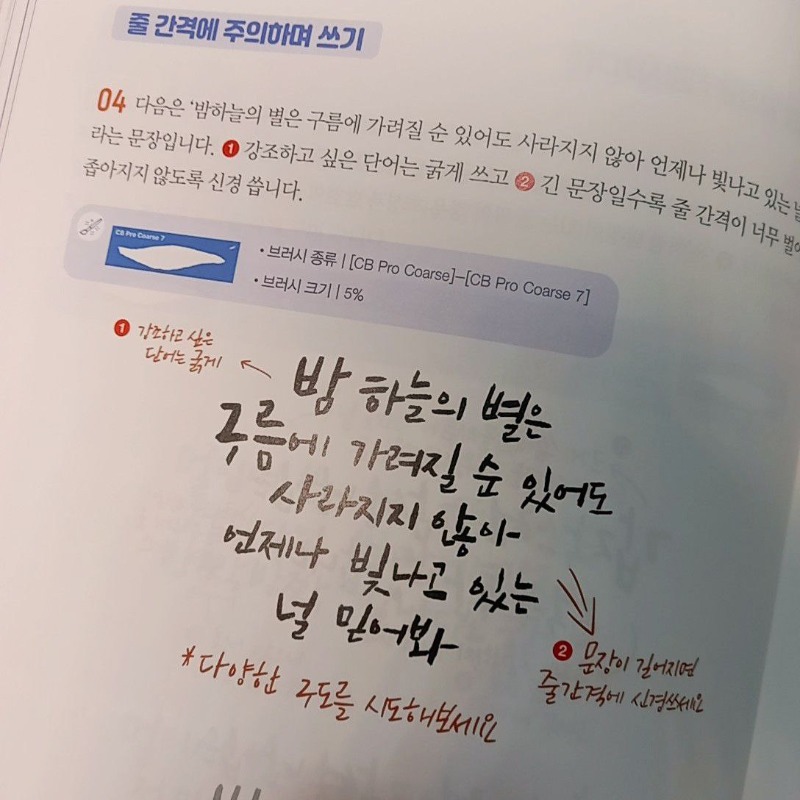 줄 간격에 주의하며 쓰기
04 다음은 '밤하늘의 별은 구름에 가려질 순 있어도 사라지지 않아 언제나 빛나고 있는
라는 문장입니다. ❶ 강조하고 싶은 단어는 굵게 쓰고 ❷ 긴 문장일수록 줄 간격이 너무
좁아지지 않도록 신경 씁니다.
CB Pro Coarse 7
• 브러시 종류 | [CB Pro Coarse]–[CB Pro Coarse 7]
• 브러시 크기 | 5%
❶ 강조하고 싶은
단어는 굵게
밤 하늘의 별은
구름에 가려질 순 있어도
사라지지 않아
언제나 빛나고 있는
널 믿어봐
❷ 문장이 길어지면
줄간격에 신경쓰세요
*다양한 구도를 시도해보세요